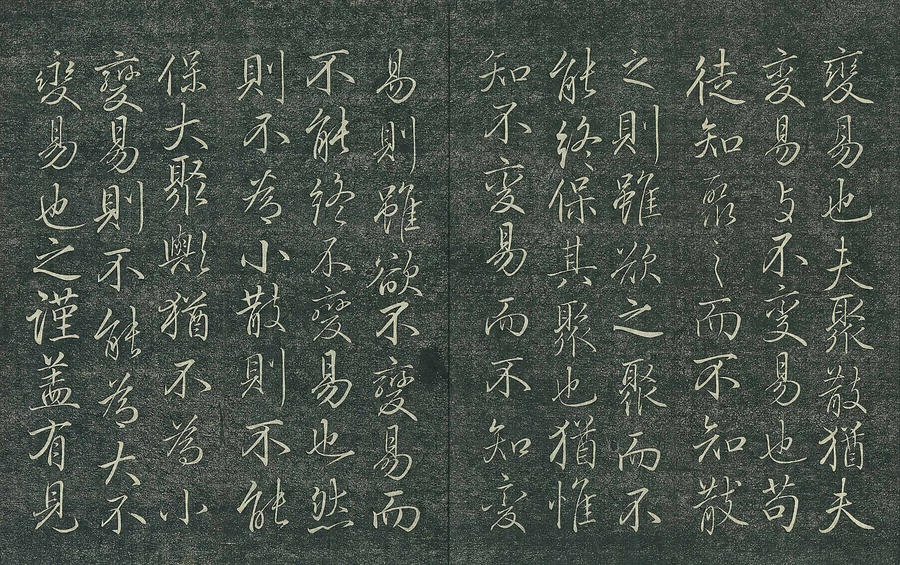 變易也夫聚散猶夫
变易与不变易也苟
徒知聚之而不知散
之則雖欲之聚而不
能終保其聚也猶惟
知不变易而不知变
易則雖欲不變易而
不能終不變易也然
則不為小散則不能
保大聚歟猶不為小
變易則不能為大不
变易也之謹蓋有見